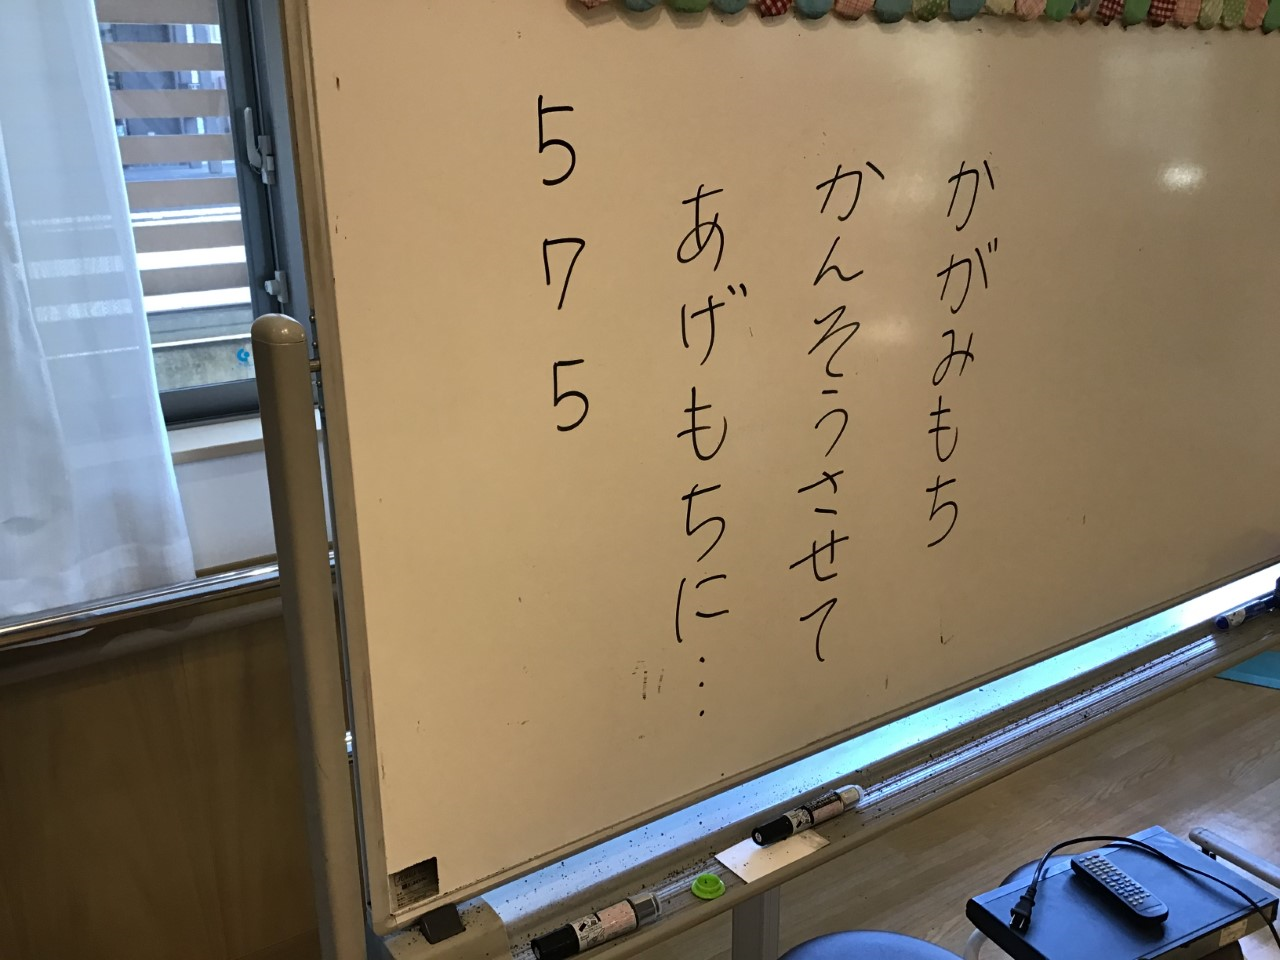 かがみもち
かんそうさせて
あげもちに…
5 7 5